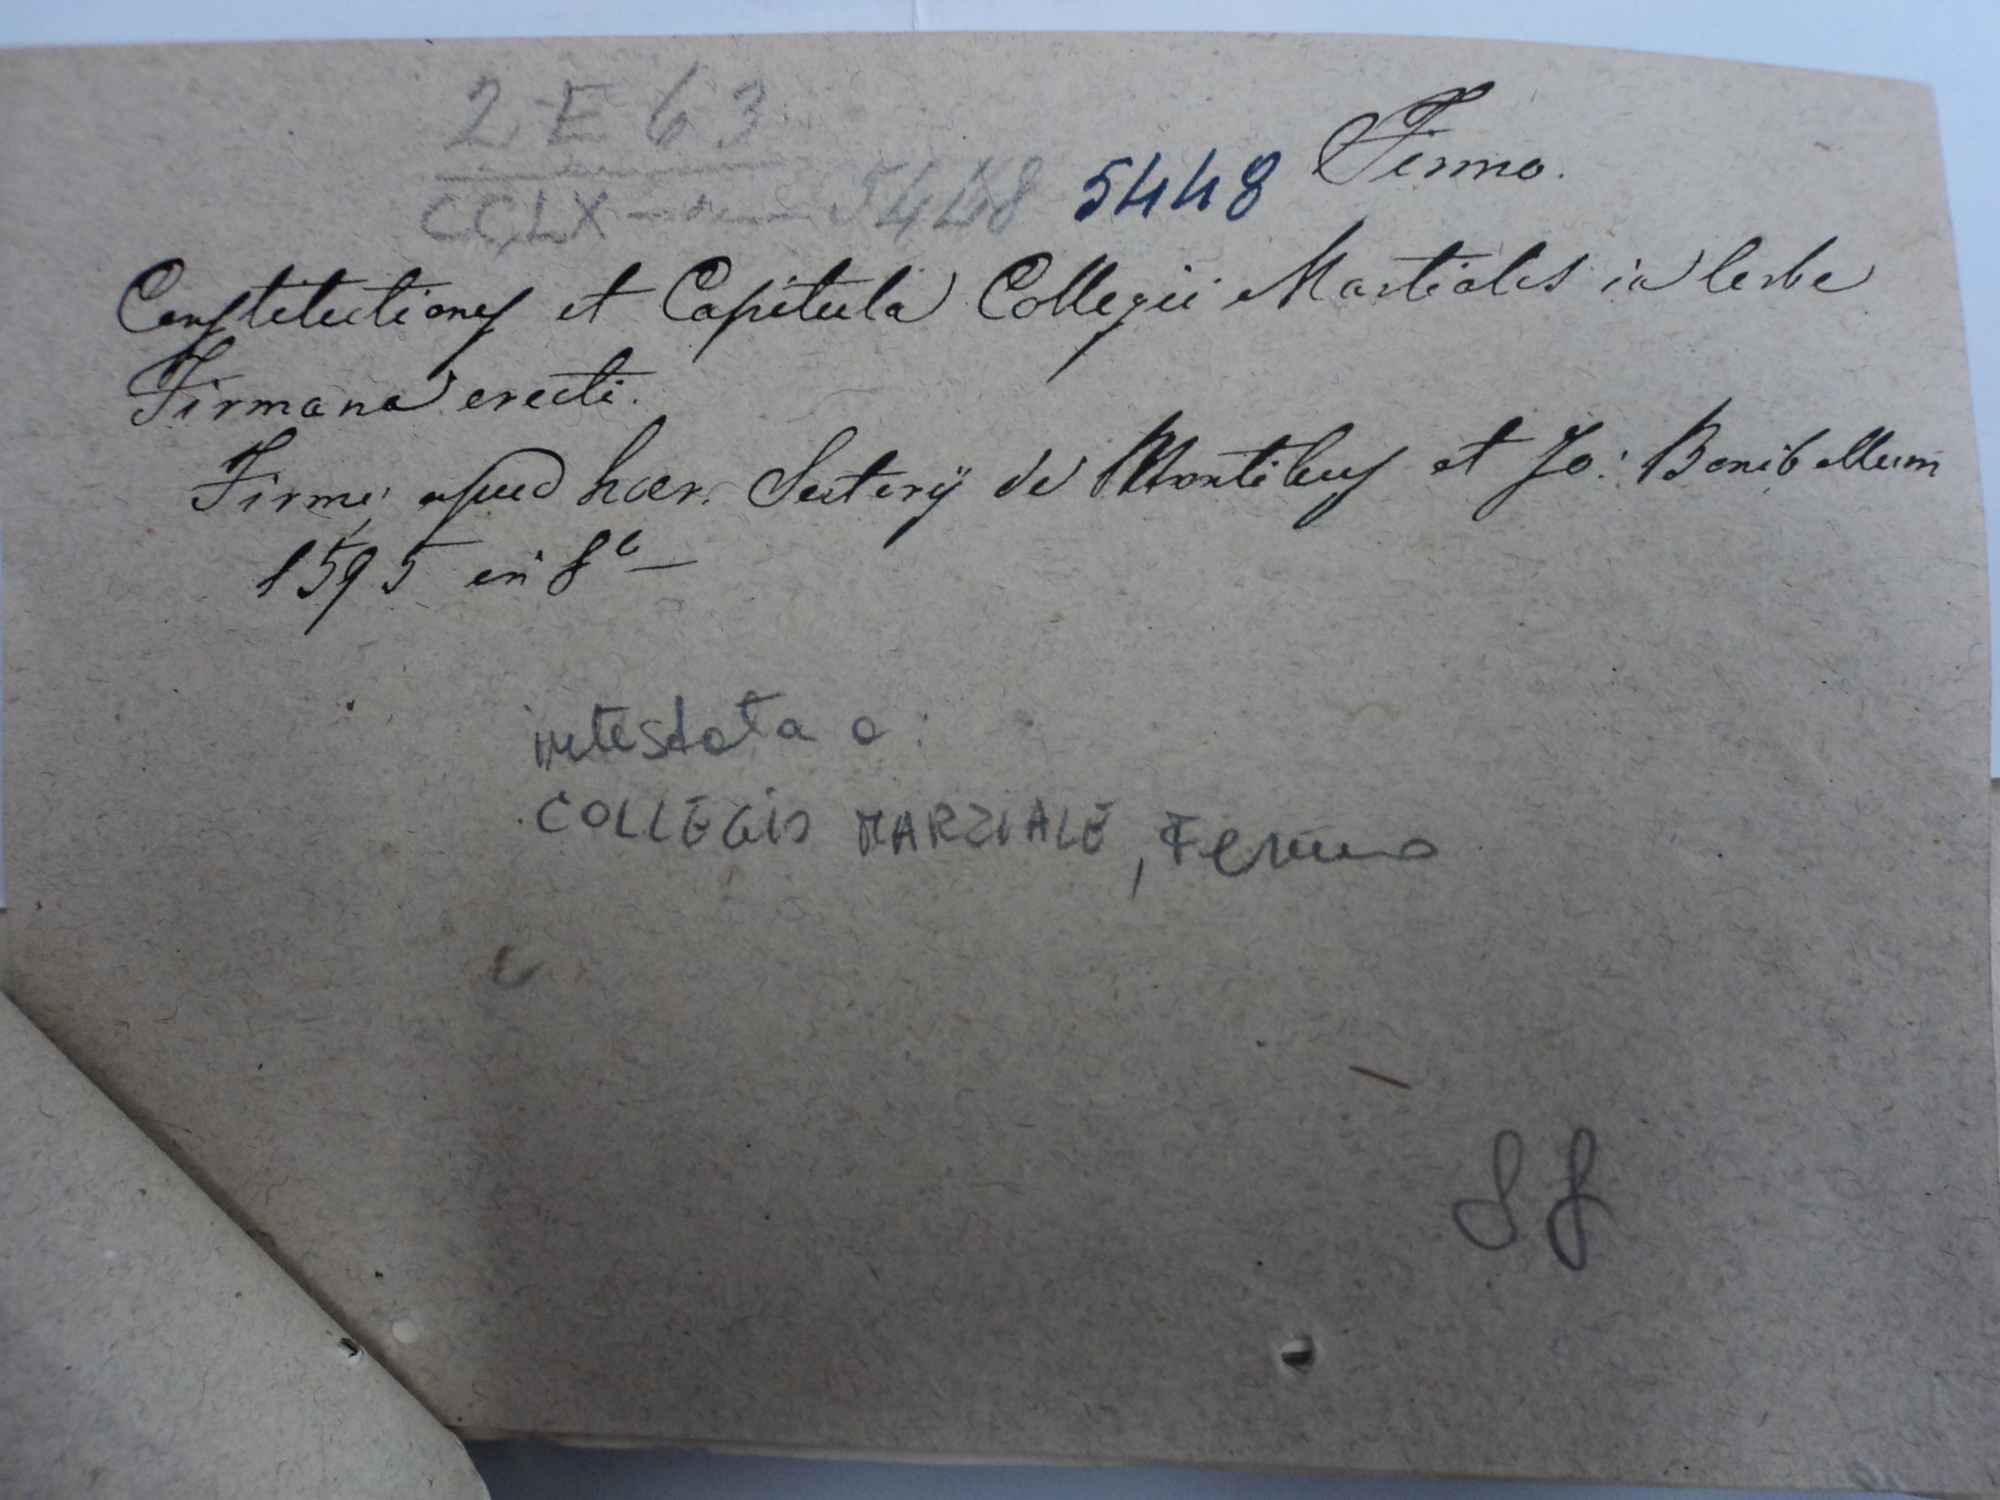 2 E 63
CCLX 5448 5448 Fermo.
Constitutiones et Capitula Collegii Martialis in Urbe
Firmana erecti.
Firmi, apud hær. Sertorij de Montibus et Jo: Bonibellum
1595 in 8º
intestata a:
COLLEGIO MARZIALE, Fermo